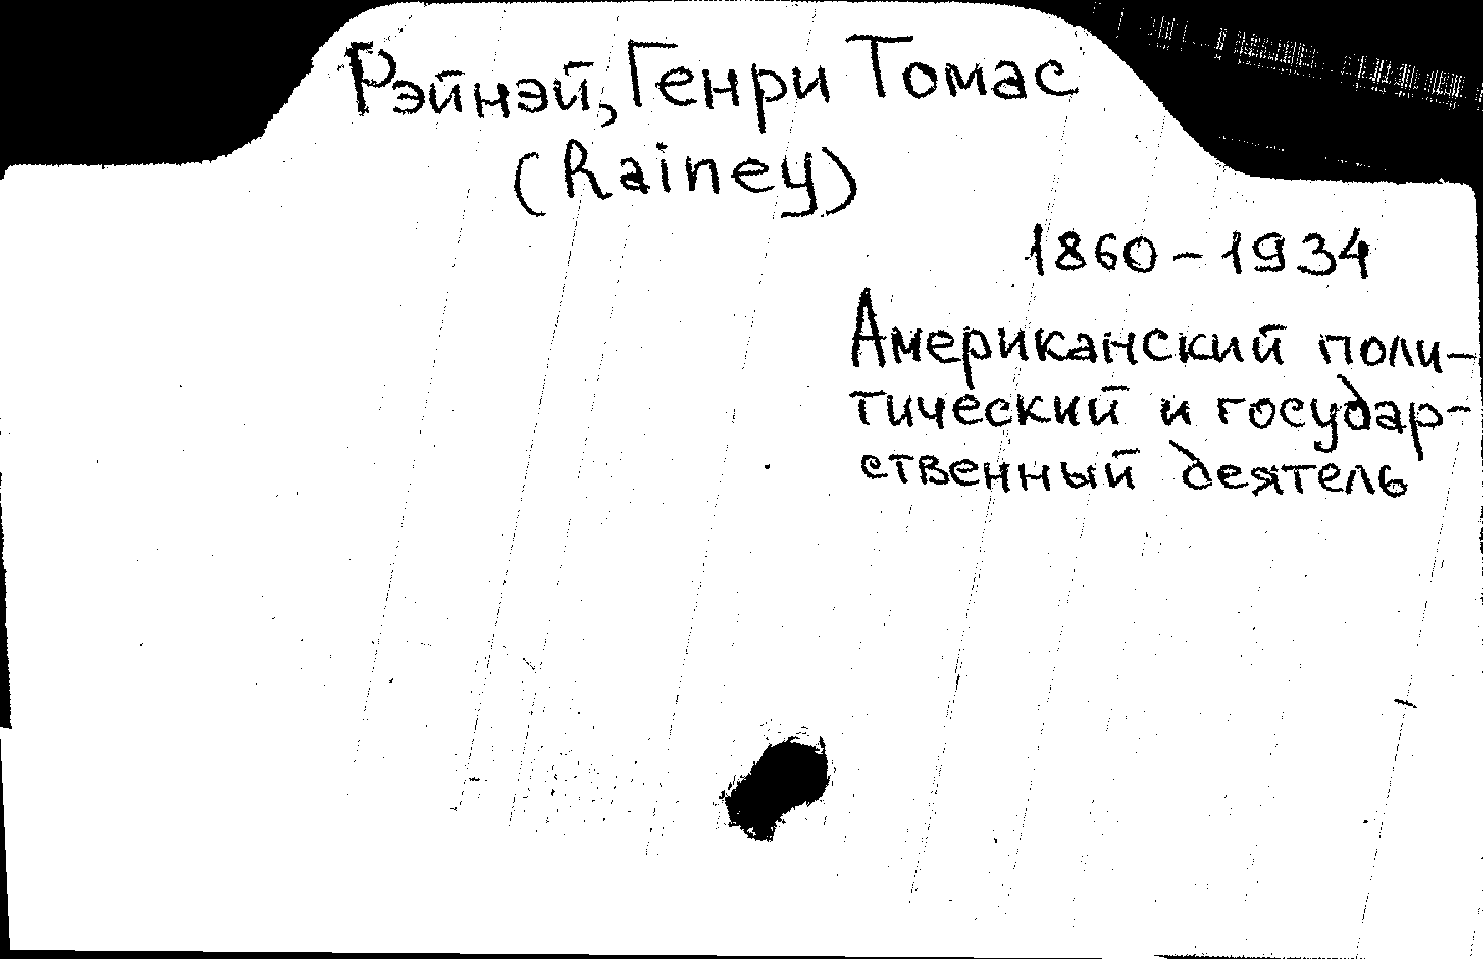 Рэйнэй, Генри Томас
(Rainey)
1860-1934
Американский поли-
тический и государ-
ственный деятель